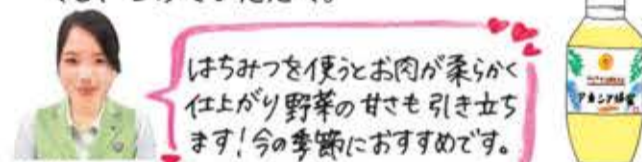 はちみつを使うとお肉が柔らかく
仕上がり野菜の甘さも引き立ち
ます!今の季節におすすめです。
アカシア蜂蜜